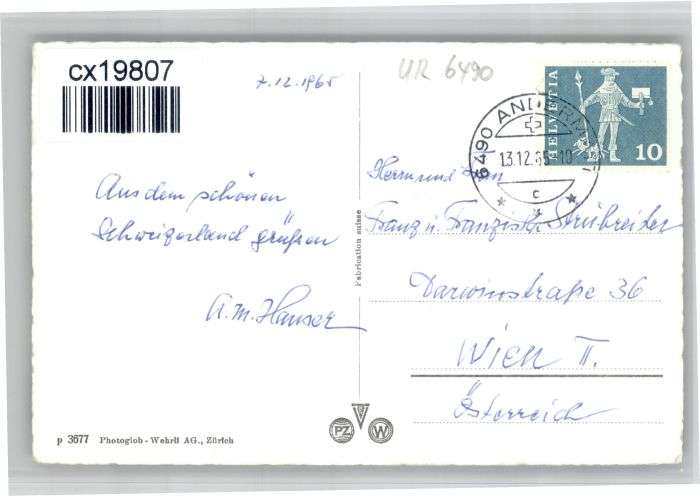 cx19807
7.12.1965
UR 6490
HELVETIA
10
6490 ANDERMATT
13.12.65-10
c
Aus dem schönen
Schweizerland grüßen
A.M. Hauser
Herrn und Frau
Franz u. Franziska Strubreiter
Darwinstraße 36
Wien II.
Österreich
Fabrication suisse
PZ
W
p 3677 Photoglob-Wehrli AG., Zürich